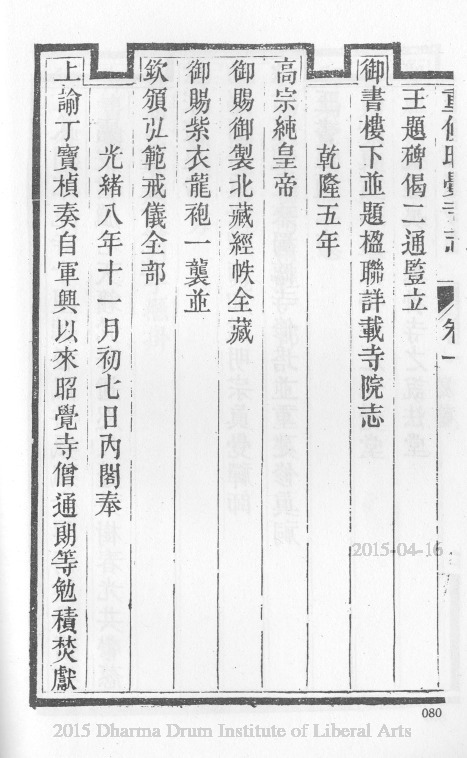 重修昭覺寺志 卷一
王題碑偈二通豎立
御書樓下並題楹聯詳載寺院志
乾隆五年
高宗純皇帝
御賜御製北藏經帙全藏
御賜紫衣龍袍一襲並
欽頒弘範戒儀全部
光緒八年十一月初七日內閣奉
上諭丁寶楨奏自軍興以來昭覺寺僧通朗等勉積焚獻
2015-04-16
080
2015 Dharma Drum Institute of Liberal Arts